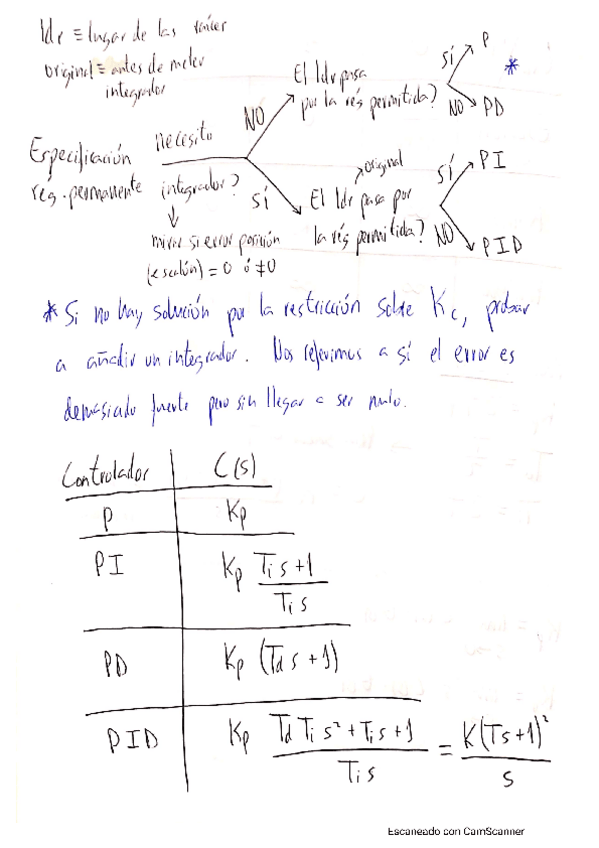 ldr ≡ lugar de las raíces
original = antes de meter
integrador
El ldr pasa
por la rég permitida?
SÍ P
*
NO PD
NO
Especificación
reg. permanente
necesito
integrador?
SÍ
original
El ldr pasa por
la rég permitida?
SÍ PI
NO PID
mirar si error posición
(escalón) = 0 ó ≠ 0
* Si no hay solución por la restricción sobre Kc, probar
a añadir un integrador. Nos referimos a si el error es
demasiado fuerte pero sin llegar a ser nulo.
Controlador C(s)
P Kp
PI Kp (Ti s + 1) / (Ti s)
PD Kp (Td s + 1)
PID Kp (Td Ti s² + Ti s + 1) / (Ti s) = K(Ts + 1)² / s
Escaneado con CamScanner